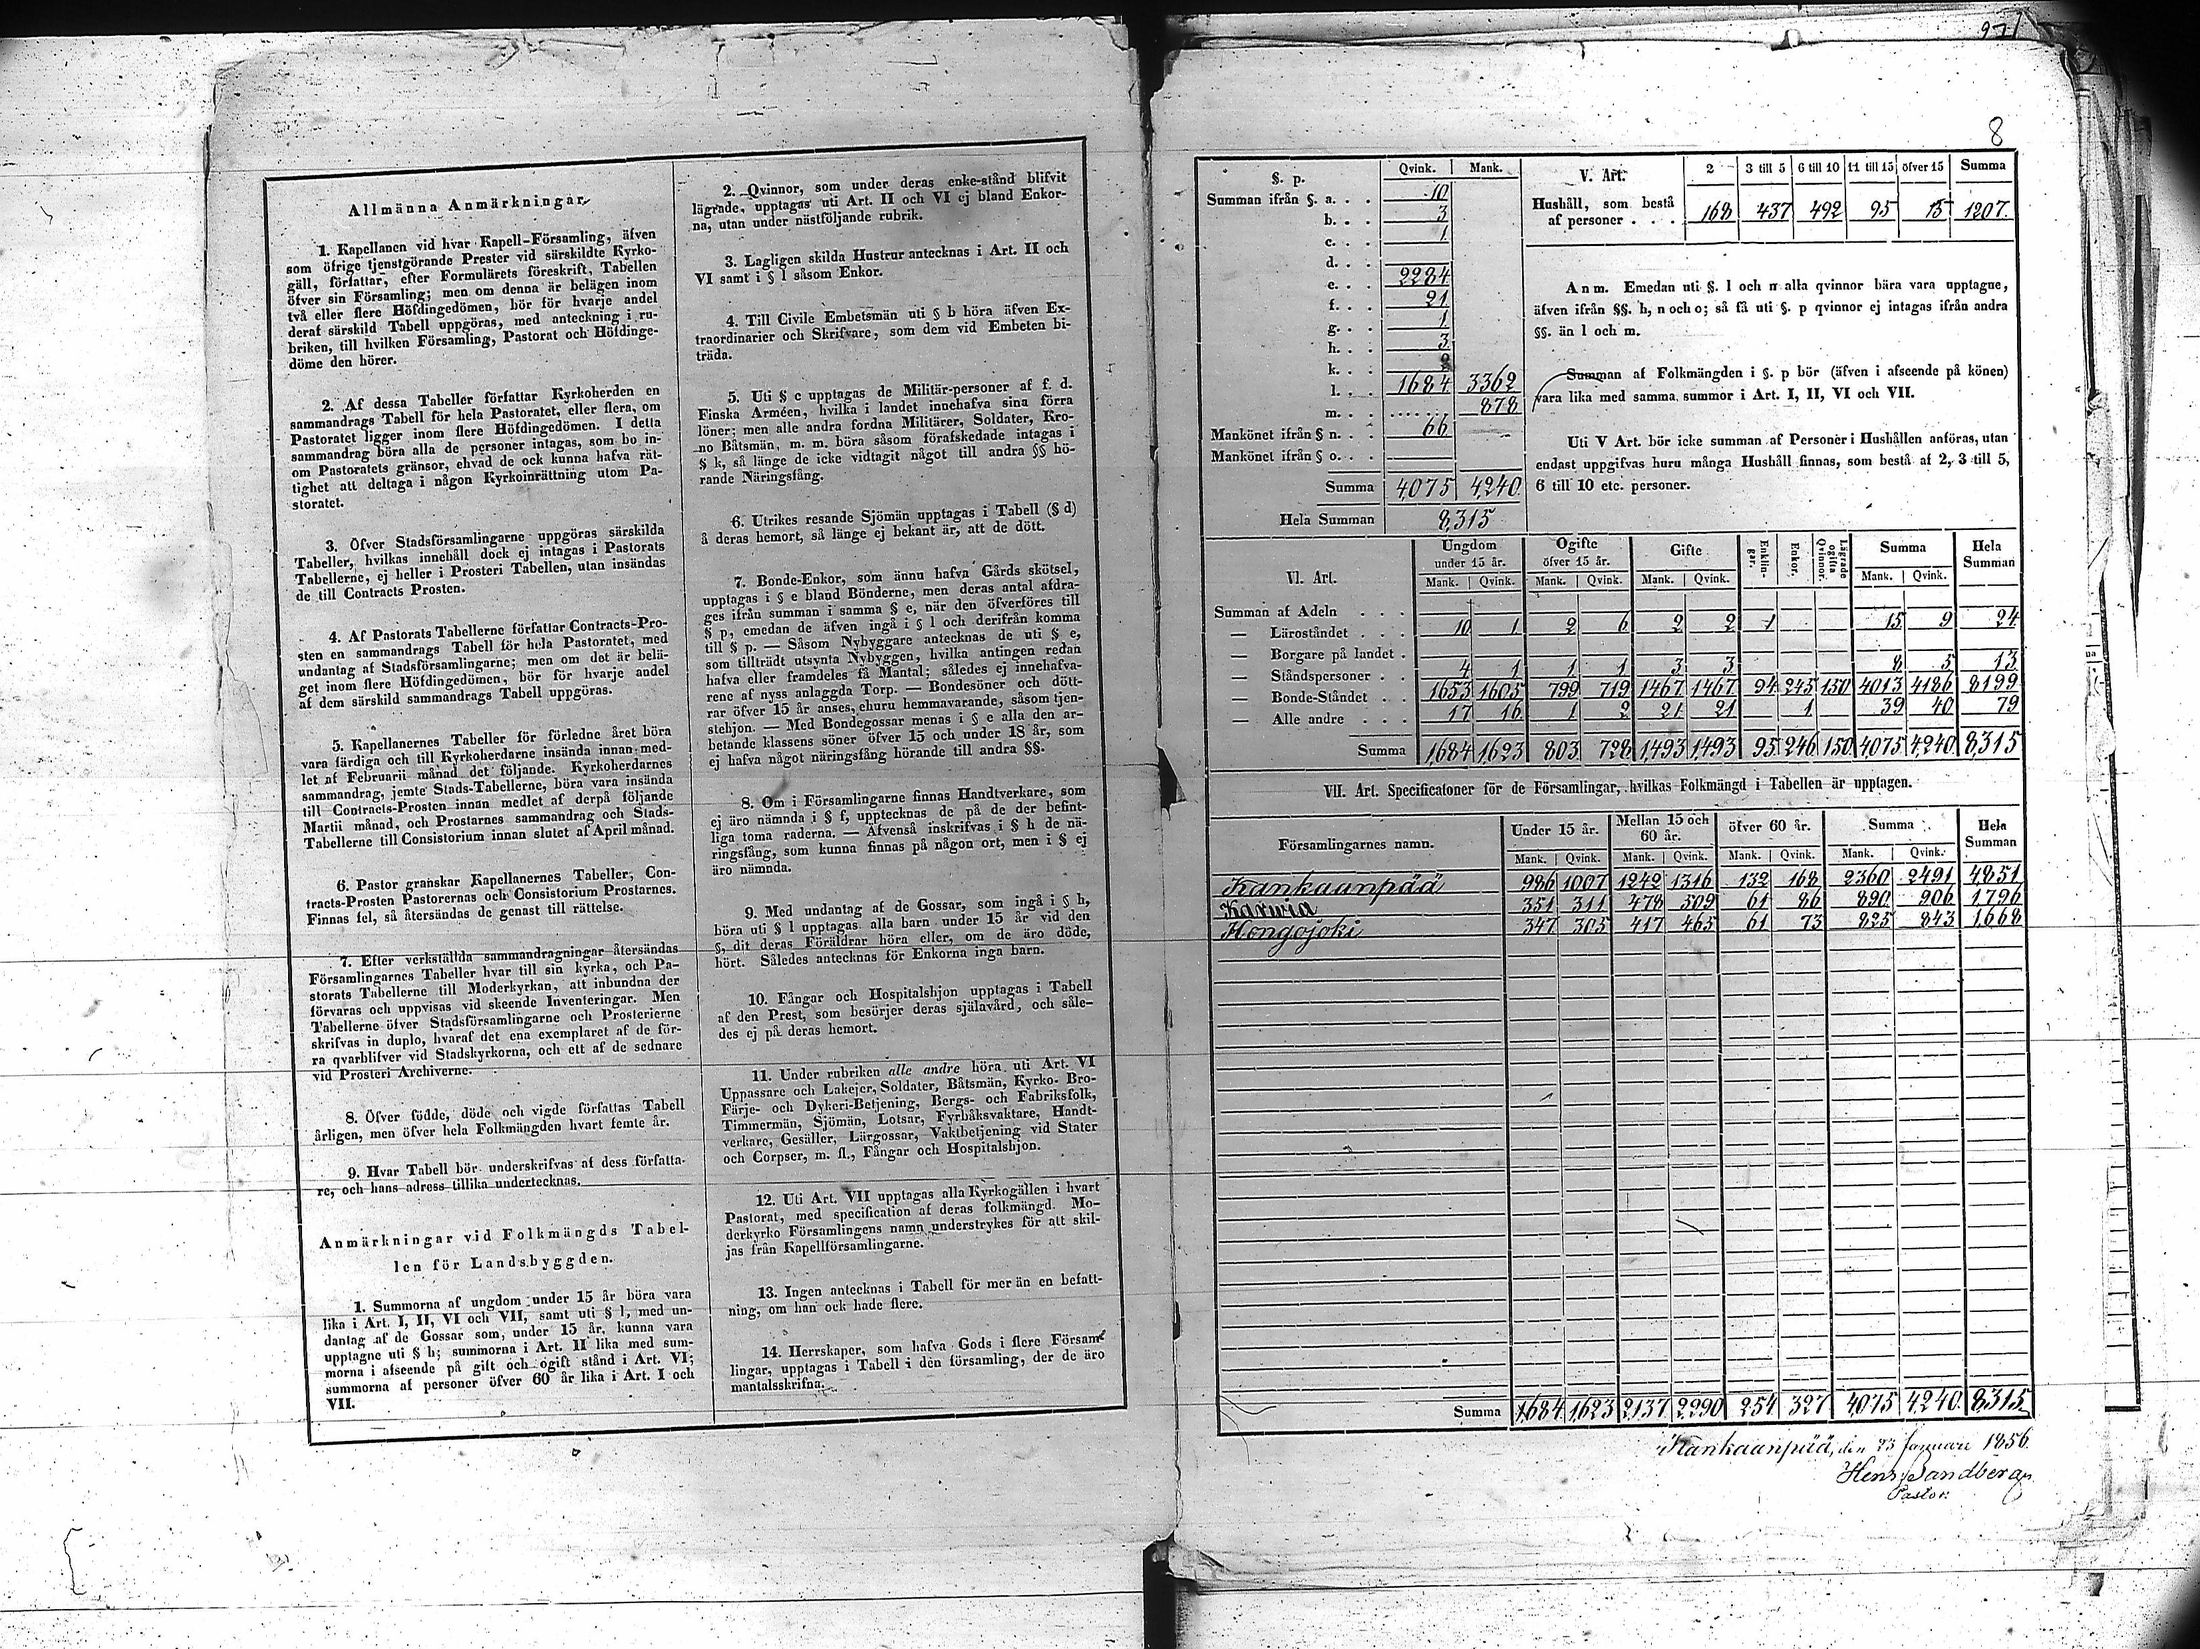 Allmänna Anmärkningar.
1. Kapellanen vid hvar Kapell-Församling, äfven
som öfrige tjenstgörande Prester vid särskildte Kyrko-
gäll, författar, efter Formulärets föreskrift, Tabellen
öfver sin Församling; men om denna är belägen inom
två eller flere Höfdingedömen, bör för hvarje andel
deraf särskild Tabell uppgöras, med anteckning i ru-
briken, till hvilken Församling, Pastorat och Höfdinge-
döme den hörer.
2. Af dessa Tabeller författar Kyrkoherden en
sammandrags Tabell för hela Pastoratet, eller flera, om
Pastoratet ligger inom flere Höfdingedömen. I detta
sammandrag böra alla de personer intagas, som bo in-
om Pastoratets gränsor, ehvad de ock kunna hafva rät-
tighet att deltaga i någon Kyrkoinrättning utom Pa-
storatet.
3. Öfver Stadsförsamlingarne uppgöras särskilda
Tabeller, hvilkas innehåll dock ej intagas i Pastorats
Tabellerne, ej heller i Prosteri Tabellen, utan insändas
de till Contracts Prosten.
4. Af Pastorats Tabellerne författar Contracts-Pro-
sten en sammandrags Tabell för hela Pastoratet, med
undantag af Stadsförsamlingarne; men om det är belä-
get inom flere Höfdingedömen, bör för hvarje andel
af dem särskild sammandrags Tabell uppgöras.
5. Kapellanernes Tabeller för förledne året böra
vara färdiga och till Kyrkoherdarne insända innan med-
let af Februarii månad det följande. Kyrkoherdarnes
sammandrag, jemte Stads-Tabellerne, böra vara insända
till Contracts-Prosten innan medlet af derpå följande
Martii månad, och Prostarnes sammandrag och Stads-
Tabellerne till Consistorium innan slutet af April månad.
6. Pastor granskar Kapellanernes Tabeller, Con-
tracts-Prosten Pastorernas och Consistorium Prostarnes.
Finnas fel, så återsändas de genast till rättelse.
7. Efter verkställda sammandragningar återsändas
Församlingarnes Tabeller hvar till sin kyrka, och Pa-
storats Tabellerne till Moderkyrkan, att inbundna der
förvaras och uppvisas vid skeende Inventeringar. Men
Tabellerne öfver Stadsförsamlingarne och Prosterierne
skrifvas in duplo, hvaraf det ena exemplaret af de för-
ra qvarblifver vid Stadskyrkorna, och ett af de sednare
vid Prosteri Archiverne.
8. Öfver födde, döde och vigde författas Tabell
årligen, men öfver hela Folkmängden hvart femte år.
9. Hvar Tabell bör underskrifvas af dess författa-
re, och hans adress tillika undertecknas.
Anmärkningar vid Folkmängds Tabel-
len för Landsbyggden.
1. Summorna af ungdom under 15 år böra vara
lika i Art. I, II, VI och VII, samt uti § l, med un-
dantag af de Gossar som, under 15 år, kunna vara
upptagne uti § h; summorna i Art. II lika med sum-
morna i afseende på gift och ogift stånd i Art. VI;
summorna af personer öfver 60 år lika i Art. I och
VII.
2. Qvinnor, som under deras enke-stånd blifvit
lägrade, upptagas uti Art. II och VI ej bland Enkor-
na, utan under nästföljande rubrik.
3. Lagligen skilda Hustrur antecknas i Art. II och
VI samt i § l såsom Enkor.
4. Till Civile Embetsmän uti § b höra äfven Ex-
traordinarier och Skrifvare, som dem vid Embeten bi-
träda.
5. Uti § c upptagas de Militär-personer af f. d.
Finska Arméen, hvilka i landet innehafva sina förra
löner; men alle andra fordna Militärer, Soldater, Kro-
no Båtsmän, m. m. böra såsom förafskedade intagas i
§ k, så länge de icke vidtagit något till andra §§ hö-
rande Näringsfång.
6. Utrikes resande Sjömän upptagas i Tabell (§ d)
å deras hemort, så länge ej bekant är, att de dött.
7. Bonde-Enkor, som ännu hafva Gårds skötsel,
upptagas i § e bland Bönderne, men deras antal afdra-
ges ifrån summan i samma § e, när den öfverföres till
§ p, emedan de äfven ingå i § l och derifrån komma
till § p. — Såsom Nybyggare antecknas de uti § e,
som tillträdt utsynta Nybyggen, hvilka antingen redan
hafva eller framdeles få Mantal; således ej innehafva-
rene af nyss anlaggda Torp. — Bondesöner och dött-
rar öfver 15 år anses, ehuru hemmavarande, såsom tjen-
stehjon. — Med Bondegossar menas i § e alla den ar-
betande klassens söner öfver 15 och under 18 år, som
ej hafva något näringsfång hörande till andra §§.
8. Om i Församlingarne finnas Handtverkare, som
ej äro nämnda i § f, upptecknas de på de der befint-
liga toma raderna. — Äfvenså inskrifvas i § h de nä-
ringsfång, som kunna finnas på någon ort, men i § ej
äro nämnda.
9. Med undantag af de Gossar, som ingå i § h,
böra uti § l upptagas alla barn under 15 år vid den
§, dit deras Föräldrar höra eller, om de äro döde,
hört. Således antecknas för Enkorna inga barn.
10. Fångar och Hospitalshjon upptagas i Tabell
af den Prest, som besörjer deras själavård, och såle-
des ej på deras hemort.
11. Under rubriken alle andre höra uti Art. VI
Uppassare och Lakejer, Soldater, Båtsmän, Kyrko- Bro-
Färje- och Dykeri-Betjening, Bergs- och Fabriksfolk,
Timmermän, Sjömän, Lotsar, Fyrbåksvaktare, Handt-
verkare, Gesäller, Lärgossar, Vaktbetjening vid Stater
och Corpser, m. fl., Fångar och Hospitalshjon.
12. Uti Art. VII upptagas alla Kyrkogällen i hvart
Pastorat, med specification af deras folkmängd. Mo-
derkyrko Församlingens namn understrykes för att skil-
jas från Kapellförsamlingarne.
13. Ingen antecknas i Tabell för mer än en befatt-
ning, om han ock hade flere.
14. Herrskaper, som hafva Gods i flere Försam-
lingar, upptagas i Tabell i den församling, der de äro
mantalsskrifna.
8
§. p. Qvink. Mank.
Summan ifrån §. a. . . 10
b. . . 3
c. . . 1
d. . .
e. . . 2284
f. . . 21
g. . . 1
h. . . 3
k. . . 2
l. . . 1684 3362
m. . . ...... 878
Mankönet ifrån § n. . . 66
Mankönet ifrån § o. . .
Summa 4075 4240
Hela Summan 8315
V. Art. 2 3 till 5 6 till 10 11 till 15 öfver 15 Summa
Hushåll, som bestå
af personer . . . 168 437 492 95 15 1207.
Anm. Emedan uti §. l och m alla qvinnor bära vara upptagne,
äfven ifrån §§. h, n och o; så få uti §. p qvinnor ej intagas ifrån andra
§§. än l och m.
Summan af Folkmängden i §. p bör (äfven i afseende på könen)
vara lika med samma summor i Art. I, II, VI och VII.
Uti V Art. bör icke summan af Personer i Hushållen anföras, utan
endast uppgifvas huru många Hushåll finnas, som bestå af 2, 3 till 5,
6 till 10 etc. personer.
VI. Art. Ungdom under 15 år. Ogifte öfver 15 år. Gifte Enklin-gar. Enkor. Lägrade ogifta Qvinnor. Summa Hela Summan
Mank. Qvink. Mank. Qvink. Mank. Qvink. Mank. Qvink.
Summan af Adeln . . .
— Läroståndet . . . 10 1 2 6 2 2 1 15 9 24
— Borgare på landet .
— Ståndspersoner . . 4 1 1 1 3 3 8 5 13
— Bonde-Ståndet . . 1653 1605 799 719 1467 1467 94 245 150 4013 4186 8199
— Alle andre . . . 17 16 1 2 21 21 1 39 40 79
Summa 1684 1623 803 728 1493 1493 95 246 150 4075 4240 8315
VII. Art. Specificatoner för de Församlingar, hvilkas Folkmängd i Tabellen är upptagen.
Församlingarnes namn. Under 15 år. Mellan 15 och 60 år. öfver 60 år. Summa Hela Summan
Mank. Qvink. Mank. Qvink. Mank. Qvink. Mank. Qvink.
Kankaanpää 986 1007 1242 1316 132 168 2360 2491 4851
Karwia 351 311 478 509 61 86 890 906 1796
Hongojoki 347 305 417 465 61 73 825 843 1668
Summa 1684 1623 2137 2290 254 327 4075 4240 8315
Kankaanpää, den 23 Januari 1856.
Henr. Sandberg
Pastor.